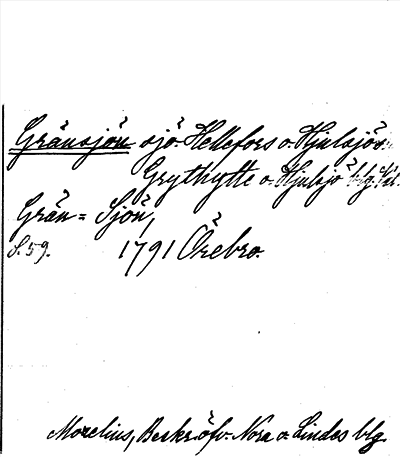 Gränsjön sjö. Hellefors o. Hjulsjös
Grythytte o. Hjulsjö blg.
Grän = Sjön,
S. 59. 1791 Örebro.
Morelius, Beskr. öfv. Nora o. Lindes blg.